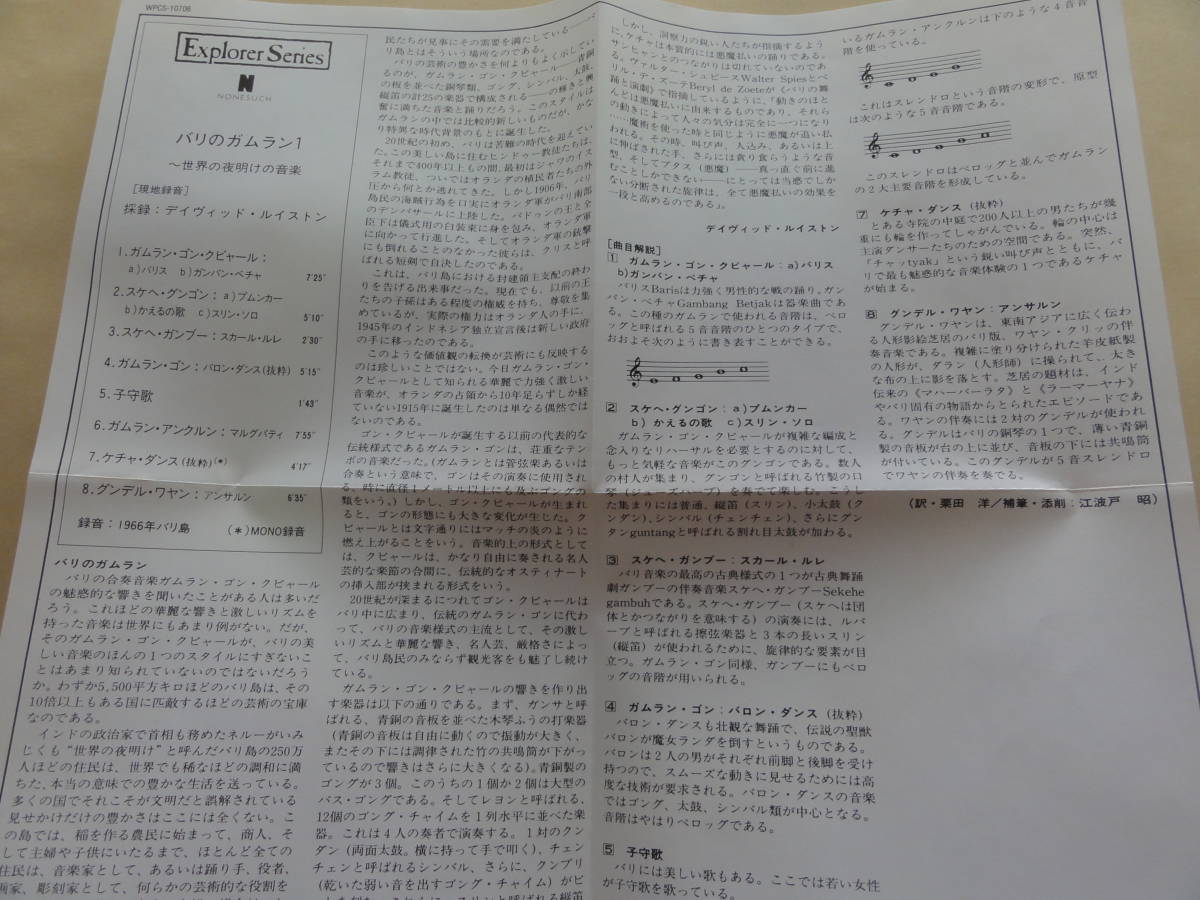 WPCS-10706
Explorer Series
N
NONESUCH
バリのガムラン1
〜世界の夜明けの音楽
［現地録音］
採録：デイヴィッド・ルイストン
1.ガムラン・ゴン・クビャール：
a)バリス　b)ガンバン・ベチャ　7'25"
2.スケヘ・グンゴン：a)プムンカー
b)かえるの歌　c)スリン・ソロ　5'10"
3.スケヘ・ガンブー：スカール・ルレ　2'30"
4.ガムラン・ゴン：バロン・ダンス(抜粋)　5'15"
5.子守歌　1'43"
6.ガムラン・アンクルン：マルグパティ　7'55"
7.ケチャ・ダンス(抜粋)(*)　4'17"
8.グンデル・ワヤン：アンサルン　6'35"
録音：1966年バリ島　(＊)MONO録音
バリのガムラン
バリの合奏音楽ガムラン・ゴン・クビャール
の魅惑的な響きを聞いたことがある人は多いだ
ろう。これほどの華麗な響きと激しいリズムを
持った音楽は世界にもあまり例がない。だが、
そのガムラン・ゴン・クビャールが、バリの美
しい音楽のほんの1つのスタイルにすぎないこ
とはあまり知られていないのではないだろう
か。わずか5,500平方キロほどのバリ島は、その
10倍以上もある国に匹敵するほどの芸術の宝庫
なのである。
インドの政治家で首相も務めたネルーがいみ
じくも“世界の夜明け”と呼んだバリ島の250万
人ほどの住民は、世界でも稀なほどの調和に満
ちた、本当の意味での豊かな生活を送っている。
多くの国でそれこそが文明だと誤解されている
見せかけだけの豊かさはここには全くない。こ
の島では、稲を作る農民に始まって、商人、そ
して主婦や子供にいたるまで、ほとんど全ての
住民は、音楽家として、あるいは踊り手、役者、
画家、彫刻家として、何らかの芸術的な役割を
民たちが見事にその需要を満たしている
バリ島とはそういう場所なのである。
バリの芸術の豊かさを何よりもよく示してい
るのが、ガムラン・ゴン・クビャール――青銅
の板を並べた鋼琴類、ゴング、シンバル、太鼓、
縦笛の計25の楽器で構成される――の輝きと興
奮に満ちた音楽と踊りだろう。このスタイルは
ガムランの中では比較的新しいものだが、かな
り特異な時代背景のもとに誕生した。
20世紀の初め、バリは苦難の時代を迎えてい
た。この美しい島に住むヒンドゥー教徒たちは、
それまで400年以上もの間、最初はジャワのイス
ラム教徒、ついではオランダの植民者たちの外
圧から何とか逃れてきた。しかし1906年、バリ
島民の海賊行為を口実にオランダ軍がバリ南部
のデンパサールに上陸した。バドゥンの王と全
臣下は儀式用の白装束に身を包み、オランダ軍
に向かって行進した。そしてオランダ軍の銃撃
にも倒れることのなかった彼らは、クリスと呼
ばれる短剣で自決したのである。
これは、バリ島における封建領主支配の終わ
りを告げる出来事だった。現在でも、以前の王
たちの子孫はある程度の権威を持ち、尊敬を集
めているが、実際の権力はオランダ人の手に、
1945年のインドネシア独立宣言後は新しい政府
の手に移ったのである。
このような価値観の転換が芸術にも反映する
のは珍しいことではない。今日ガムラン・ゴン・
クビャールとして知られる華麗で力強く激しい
音楽が、オランダの占領から10年足らずしか経
ていない1915年に誕生したのは単なる偶然では
ないのである。
ゴン・クビャールが誕生する以前の代表的な
伝統様式であるガムラン・ゴンは、荘重なテン
ポの音楽だった。(ガムランとは管弦楽あるいは
合奏という意味で、ゴンはその演奏に使用され
る、時に直径1メートル以上にも及ぶゴングの
類をいう。)しかし、ゴン・クビャールが生まれ
ると、ゴンの形態にも大きな変化が生じた。ク
ビャールとは文字通りにはマッチの炎のように
燃え上がることをいう。音楽的上の形式として
は、クビャールは、かなり自由に奏される名人
芸的な楽節の合間に、伝統的なオスティナート
の挿入部が挟まれる形式をいう。
20世紀が深まるにつれてゴン・クビャールは
バリ中に広まり、伝統のガムラン・ゴンに代わ
って、バリの音楽様式の主流として、その激し
いリズムと華麗な響き、名人芸、厳格さによっ
て、バリ島民のみならず観光客をも魅了し続け
ている。
ガムラン・ゴン・クビャールの響きを作り出
す楽器は以下の通りである。まず、ガンサと呼
ばれる、青銅の音板を並べた木琴ふうの打楽器
(青銅の音板は自由に動くので振動が大きく、
またその下には調律された竹の共鳴筒が下がっ
ているので響きはさらに大きくなる)。青銅製の
ゴングが3個。このうちの1個か2個は大型の
バス・ゴングである。そしてレヨンと呼ばれる、
12個のゴング・チャイムを1列水平に並べた楽
器。これは4人の奏者で演奏する。1対のクン
ダン(両面太鼓。横に持って手で叩く)、チェン
チェンと呼ばれるシンバル、さらに、クンプリ
(乾いた弱い音を出すゴング・チャイム)がビ
しかし、洞察力の鋭い人たちが指摘するよう
に、ケチャは本質的には悪魔払いの踊りである。
サンヒャンとのつながりは切れていないのであ
る。ヴァルター・シュピースWalter Spiesとベ
リル・デ・ズーテBeryl de Zoeteが《バリの舞
踊と演劇》で指摘しているように、「動きのほと
んどは悪魔払いに由来するものであり、それら
の動きによって人々の気分は完全に一つになり
……魔術を使った時と同じように悪魔が追い払
われる。その時、叫び声、人込み、あるいは上
に伸ばされた手、さらには貪り食らうような音
型、そしてブタス(悪魔)――真っ直ぐ前に進
むことしかできない――にとっては当惑でしか
ない分断された旋律は、全て悪魔払いの効果を
一段と高めるのである」。
デイヴィッド・ルイストン
［曲目解説］
1　ガムラン・ゴン・クビャール：a)バリス
b)ガンバン・ベチャ
バリスBarisは力強く男性的な戦の踊り。ガン
バン・ベチャGambang Betjakは器楽曲であ
る。この種のガムランで使われる音階は、ペロ
ッグと呼ばれる5音音階のひとつのタイプで、
おおよそ次のように書き表すことができる。
2　スケヘ・グンゴン：a)プムンカー
b)かえるの歌　c)スリン・ソロ
ガムラン・ゴン・クビャールが複雑な編成と
念入りなリハーサルを必要とするのに対して、
もっと気軽な音楽がこのグンゴンである。数人
の村人が集まり、グンゴンと呼ばれる竹製の口
琴(ジューズハープ)を奏でて楽しむ。こうし
た集まりには普通、縦笛(スリン)、小太鼓(ク
ンダン)、シンバル(チェンチェン)、さらにグン
タンguntangと呼ばれる割れ目太鼓が加わる。
3　スケヘ・ガンブー：スカール・ルレ
バリ音楽の最高の古典様式の1つが古典舞踊
劇ガンブーの伴奏音楽スケヘ・ガンブーSekehe
gambuhである。スケヘ・ガンブー(スケヘは団
体とかつながりを意味する)の演奏には、ルバ
ーブと呼ばれる擦弦楽器と3本の長いスリン
(縦笛)が使われるために、旋律的な要素が目
立つ。ガムラン・ゴン同様、ガンブーにもペロ
ッグの音階が用いられる。
4　ガムラン・ゴン：バロン・ダンス(抜粋)
バロン・ダンスも壮観な舞踊で、伝説の聖獣
バロンが魔女ランダを倒すというものである。
バロンは2人の男がそれぞれ前脚と後脚を受け
持つので、スムーズな動きに見せるためには高
度な技術が要求される。バロン・ダンスの音楽
ではゴング、太鼓、シンバル類が中心となる。
音階はやはりペロッグである。
5　子守歌
バリには美しい歌もある。ここでは若い女性
が子守歌を歌っている。
いるガムラン・アンクルンは下のような4音音
階を使っている。
これはスレンドロという音階の変形で、原型
は次のような5音音階である。
このスレンドロはペロッグと並んでガムラン
の2大主要音階を形成している。
7　ケチャ・ダンス(抜粋)
とある寺院の中庭で200人以上の男たちが幾
重にも輪を作ってしゃがんでいる。輪の中心は
主演ダンサーたちのための空間である。突然、
「チャッtyak」という鋭い叫び声とともに、バ
リで最も魅惑的な音楽体験の1つであるケチャ
が始まる。
8　グンデル・ワヤン：アンサルン
グンデル・ワヤンは、東南アジアに広く伝わ
る人形影絵芝居のバリ版、ワヤン・クリッの伴
奏音楽である。複雑に塗り分けられた羊皮紙製
の人形が、ダラン(人形師)に操られて、大き
な布の上に影を落とす。芝居の題材は、インド
伝来の《マハーバーラタ》と《ラーマーヤナ》
やバリ固有の物語からとられたエピソードであ
る。ワヤンの伴奏には2対のグンデルが使われ
る。グンデルはバリの鋼琴の1つで、薄い青銅
製の音板が台の上に並び、音板の下には共鳴筒
が付いている。このグンデルが5音スレンドロ
でワヤンの伴奏を奏でる。
(訳・栗田　洋／補筆・添削：江波戸　昭)